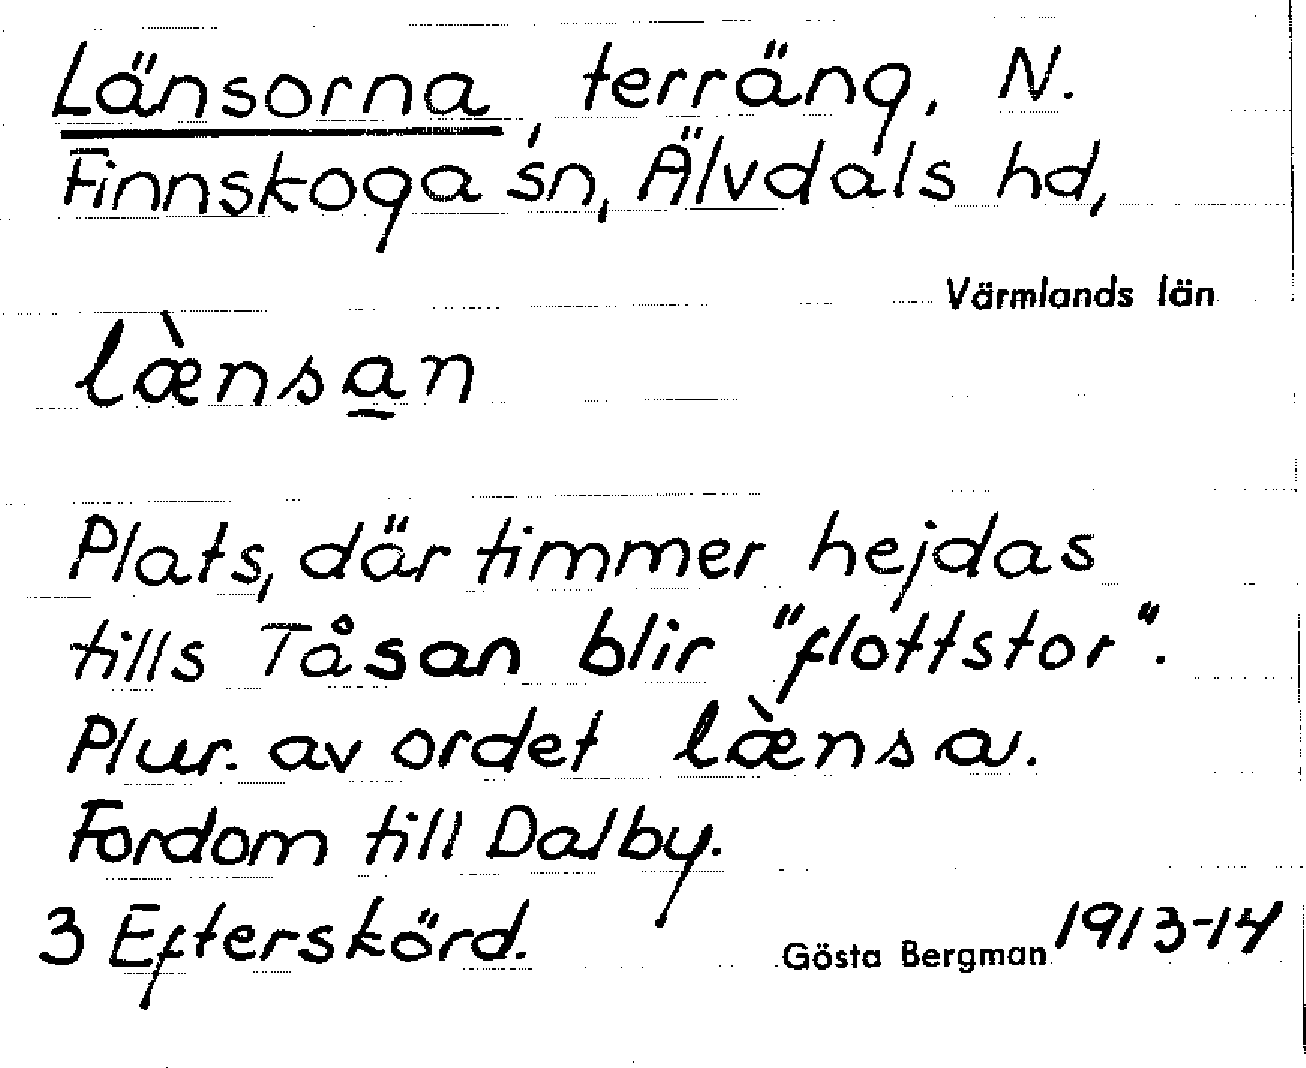 Länsorna, terräng, N.
Finnskoga sn, Älvdals hd,
Värmlands län
læ̀nsa̲n
Plats, där timmer hejdas
tills Tåsan blir "flottstor".
Plur. av ordet læ̀nsa.
Fordom till Dalby.
3 Efterskörd. Gösta Bergman 1913-14